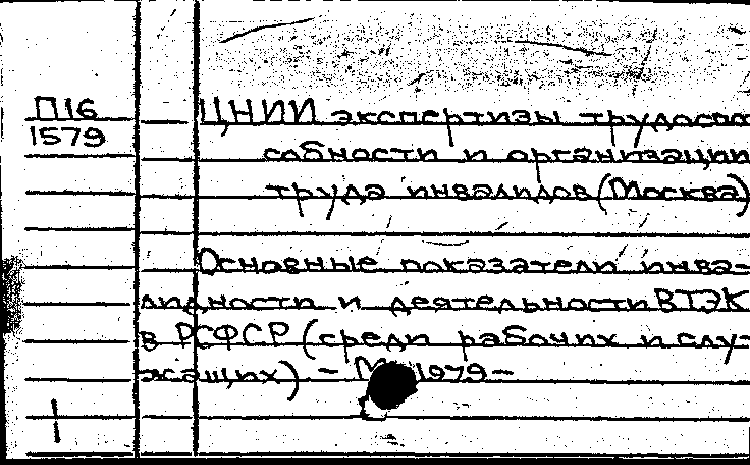 П16
1579
ЦНИИ экспертизы трудоспо
собности и организации
труда инвалидов (Москва)
Основные показатели инва-
лидности и деятельности ВТЭК
в РСФСР (среди рабочих и слу-
жащих) - М 1979-